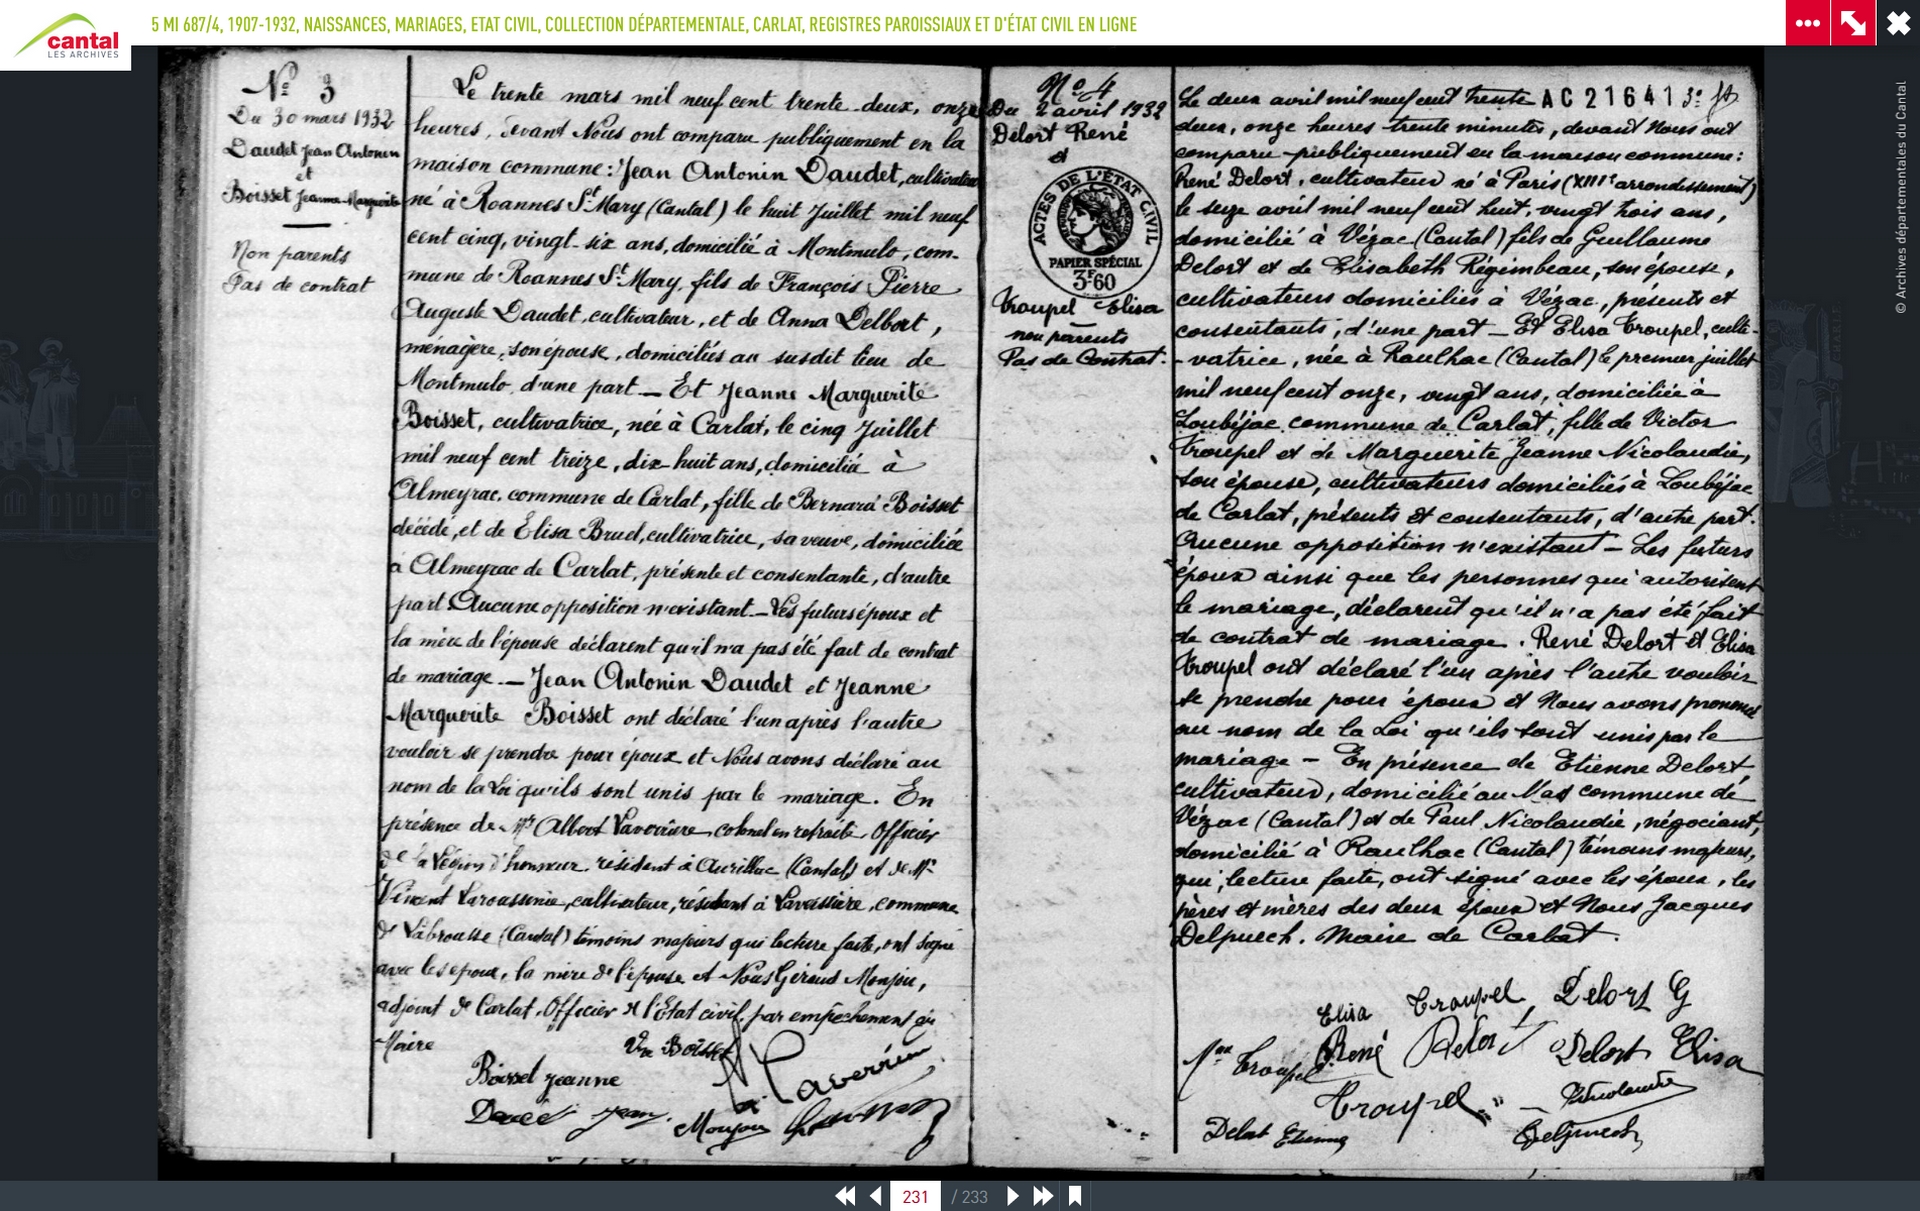 cantal
LES ARCHIVES
5 MI 687/4, 1907-1932, NAISSANCES, MARIAGES, ETAT CIVIL, COLLECTION DÉPARTEMENTALE, CARLAT, REGISTRES PAROISSIAUX ET D'ÉTAT CIVIL EN LIGNE
© Archives départementales du Cantal
Nº 3
Du 30 mars 1932
Daudet Jean Antonin
et
Boisset Jeanne Marguerite
Non parents
Pas de contrat
Le trente mars mil neuf cent trente-deux, onze
heures, devant Nous ont comparu publiquement en la
maison commune : Jean Antonin Daudet, cultivateur
né à Roannes St Mary (Cantal) le huit Juillet mil neuf
cent cinq, vingt-six ans, domicilié à Montmulo, com-
mune de Roannes St Mary, fils de François Pierre
Auguste Daudet, cultivateur, et de Anna Delbort,
ménagère, son épouse, domiciliés au susdit lieu de
Montmulo, d'une part — Et Jeanne Marguerite
Boisset, cultivatrice, née à Carlat, le cinq Juillet
mil neuf cent treize, dix huit ans, domiciliée à
Almeyrac, commune de Carlat, fille de Bernard Boisset
décédé, et de Élisa Bruel, cultivatrice, sa veuve, domiciliée
à Almeyrac de Carlat, présente et consentante, d'autre
part. Aucune opposition n'existant — Les futurs époux et
la mère de l'épouse déclarent qu'il n'a pas été fait de contrat
de mariage — Jean Antonin Daudet et Jeanne
Marguerite Boisset ont déclaré l'un après l'autre
vouloir se prendre pour époux et Nous avons déclaré au
nom de la Loi qu'ils sont unis par le mariage. En
présence de Mr Albert Laverrière colonel en retraite, Officier
de la Légion d'honneur, résidant à Aurillac (Cantal) et de Mr
Vincent Laroussinie, cultivateur, résidant à Lavaissière, commune
de Labrousse (Cantal) témoins majeurs qui lecture faite, ont signé
avec les époux, la mère de l'épouse et Nous Géraud Monjou,
adjoint de Carlat, Officier de l'État civil, par empêchement du
Maire
Vve Boisset
Boisset Jeanne
Laverrière
Daudet Jean
Monjou
Nº 4
Du 2 avril 1932
Delort René
et
ACTES DE L'ÉTAT CIVIL
PAPIER SPÉCIAL
3F60
Troupel Elisa
non parents
Pas de Contrat.
AC 21641
Le deux avril mil neuf cent trente
deux, onze heures trente minutes, devant Nous ont
comparu publiquement en la maison commune :
René Delort, cultivateur né à Paris (XIIIe arrondissement)
le seize avril mil neuf cent huit, vingt trois ans,
domicilié à Vézac (Cantal) fils de Guillaume
Delort et de Elisabeth Régimbeau, son épouse,
cultivateurs domiciliés à Vézac, présents et
consentants, d'une part — Et Elisa Troupel, culti-
-vatrice, née à Raulhac (Cantal) le premier juillet
mil neuf cent onze, vingt ans, domiciliée à
Loubéjac commune de Carlat, fille de Victor
Troupel et de Marguerite Jeanne Nicolaudie,
son épouse, cultivateurs domiciliés à Loubéjac
de Carlat, présents et consentants, d'autre part.
Aucune opposition n'existant — Les futurs
époux ainsi que les personnes qui autorisent
le mariage, déclarent qu'il n'a pas été fait
de contrat de mariage. René Delort et Elisa
Troupel ont déclaré l'un après l'autre vouloir
se prendre pour époux et Nous avons prononcé
au nom de la Loi qu'ils sont unis par le
mariage — En présence de Etienne Delort,
cultivateur, domicilié au Mas commune de
Vézac (Cantal) et de Paul Nicolaudie, négociant,
domicilié à Raulhac (Cantal) témoins majeurs,
qui, lecture faite, ont signé avec les époux, les
pères et mères des deux époux et Nous Jacques
Delpuech, Maire de Carlat.
Elisa Troupel Delort G
Mme Troupel René Delort Delort Elisa
Troupel Nicolaudie
Delort Etienne Delpuech
231 / 233